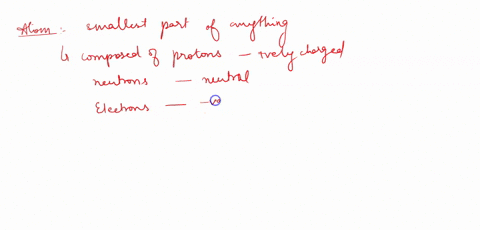 Atom :- smallest part of anything
↳ composed of protons — +vely charged
neutrons — neutral
Electrons — -v